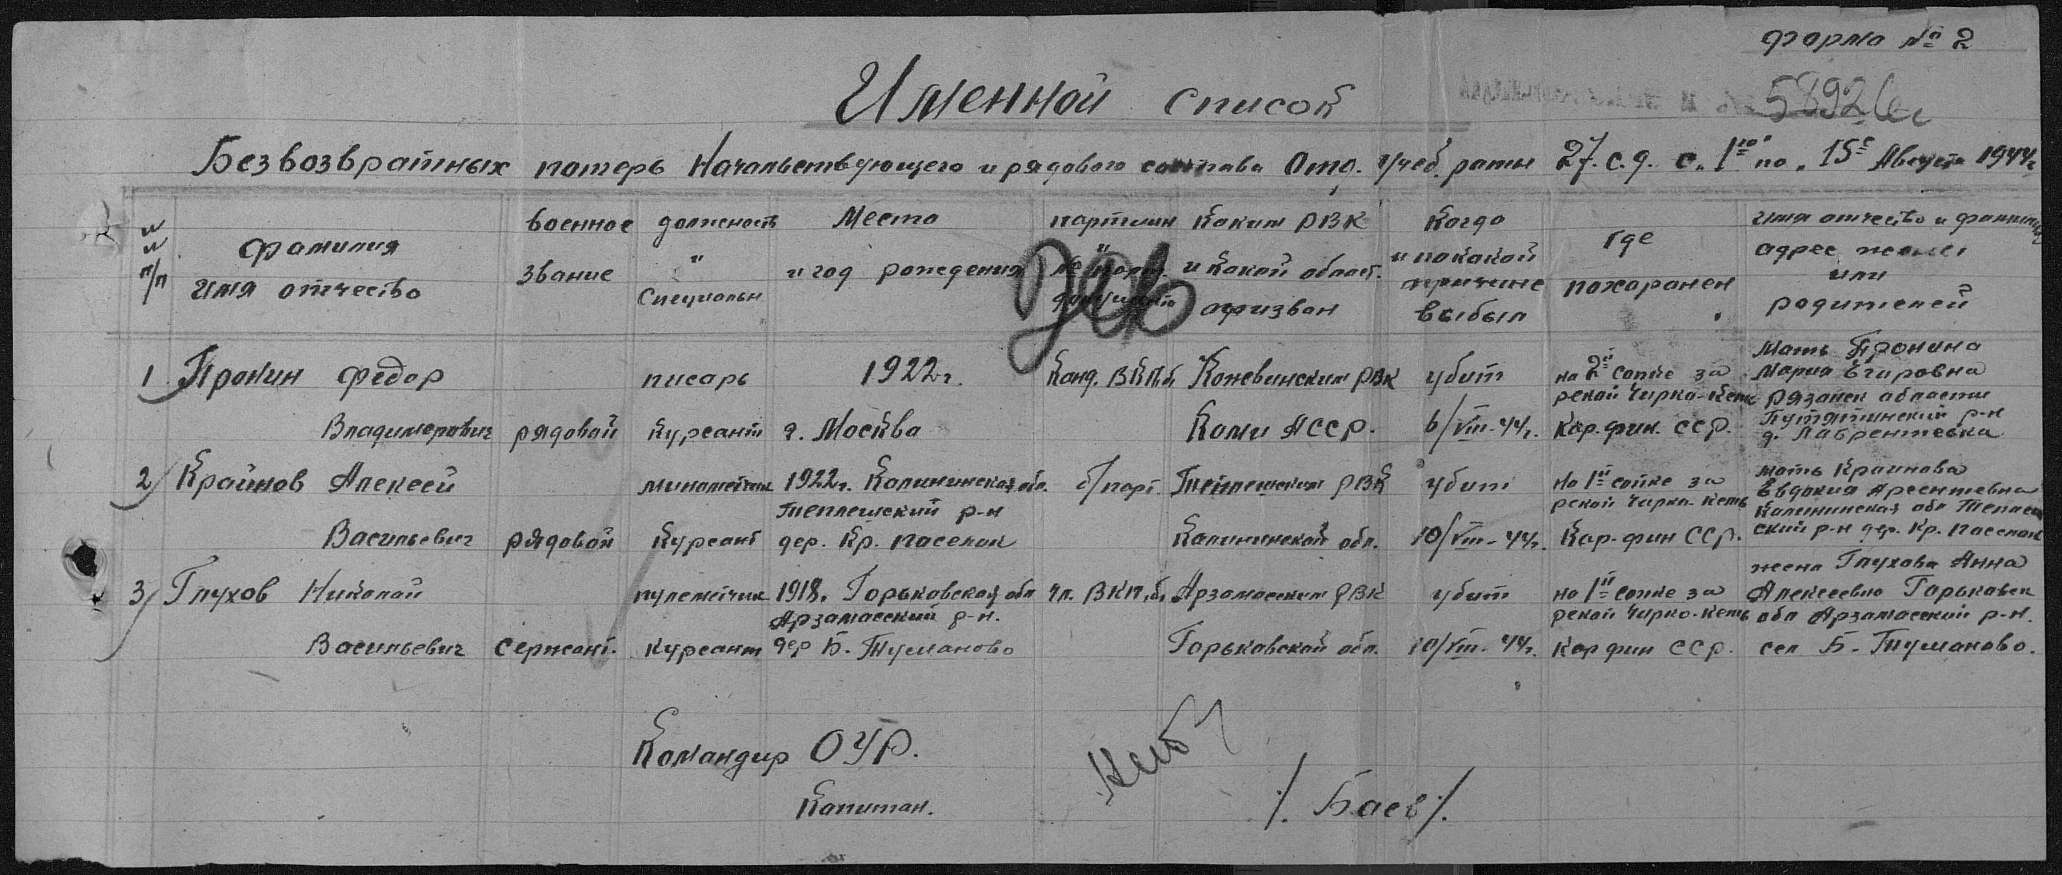 форма № 2
Именной список
58926с
Безвозвратных потерь Начальствующего и рядового состава Отд. Учеб. роты 27 с.д. с „1го по „15е Августа 1944г
№№ п/п
фамилия имя отчество
военное звание
должность и специальн
Место и год рождения
партийн и № парт. документа
Каким РВК и какой област. призван
Когда и по какой причине выбыл
где похоронен
имя отчество и фамилия адрес жены или родителей
1 Пронин Федор
Владимерович
рядовой
писарь
курсант
1922г.
г. Москва
Канд. ВКП.б.
Кожвинским РВК
Коми АССР.
убит
6/VIII-44г.
на 2й сопке за
рекой Чирка-Кемь
Кар. фин. ССР.
Мать Пронина
Мария Егировна
Рязанск области
Путятинский р-н
д. Лаврентевка
2/ Крайнов Алексей
Васильевич
рядовой
минометчик
Курсант
1922г. Калининская обл.
Теплешский р-н
дер. Кр. поселок
б/парт
Теплешским РВК
Калининской обл.
убит
10/VIII-44г.
на 1й сопке за
рекой Чирка-Кемь
Кар-фин ССР.
мать Крайнова
Евдокия Арсентевна
Калининская обл Теплеш
ский р-н дер. Кр. поселок
3/ Глухов Николай
Васильевич
сержант.
пулеметчик
курсант
1918г. Горьковская обл
Арзамасский р-н.
дер Б. Туманово
чл. ВКП.б.
Арзамасским РВК
Горьковской обл.
убит
10/VIII-44г.
на 1й сопке за
рекой Чирко-Кемь
Кар фин ССР.
жена Глухова Анна
Алексеевно Горьковск
обл Арзамасский р-н.
сел Б-Туманово.
Командир ОУР.
Капитан.
/. Баев/.